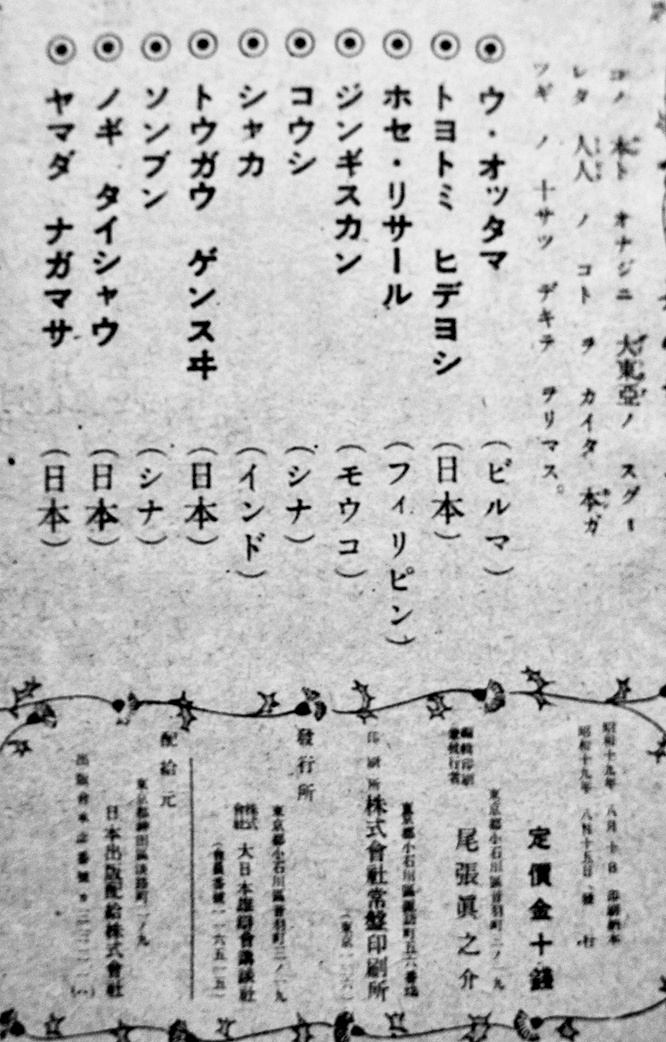 コノ 本ト オナジニ 大東亞ノ スグ
レタ 人人 ノ コト ヲ カイタ 本ガ
ツギ ノ 十サツ デキテ ヲリマス。
◉ ウ・オッタマ (ビルマ)
◉ トヨトミ ヒデヨシ (日本)
◉ ホセ・リサール (フィリピン)
◉ ジンギスカン (モウコ)
◉ コウシ (シナ)
◉ シャカ (インド)
◉ トウガウ ゲンスヰ (日本)
◉ ソンブン (シナ)
◉ ノギ タイシャウ (日本)
◉ ヤマダ ナガマサ (日本)
昭和十九年 八月 十日 印刷納本
昭和十九年 八月十五日 發行
定價金十錢
東京都小石川區音羽町三ノ一九
編輯印刷兼發行者 尾張眞之介
東京都小石川區諏訪町五六番地
印刷所 株式會社常盤印刷所
發行所
東京都小石川區音羽町三ノ一九
株式會社 大日本雄辯會講談社
(會員番號 一一六五一五)
配給元
東京都神田區淡路町二ノ九
日本出版配給株式會社